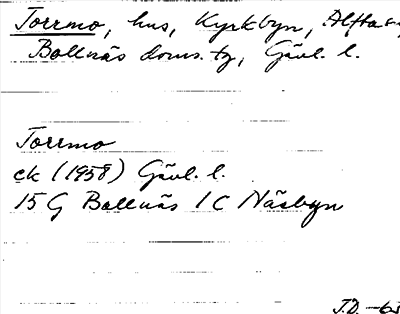 Torrmo, hus, Kyrkbyn, Alfta s
Bollnäs doms. tg, Gävl. l.
Torrmo
ek (1958) Gävl. l.
15 G Bollnäs 1 C Näsbyn
J.D. -63